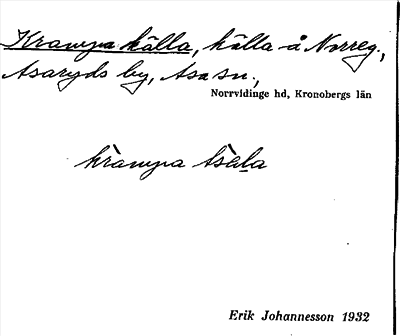 Krampa källa, källa å Norreg.,
Asaryds by, Asa sn.,
Norrvidinge hd, Kronobergs län
kràmpa t̀säla
Erik Johannesson 1932